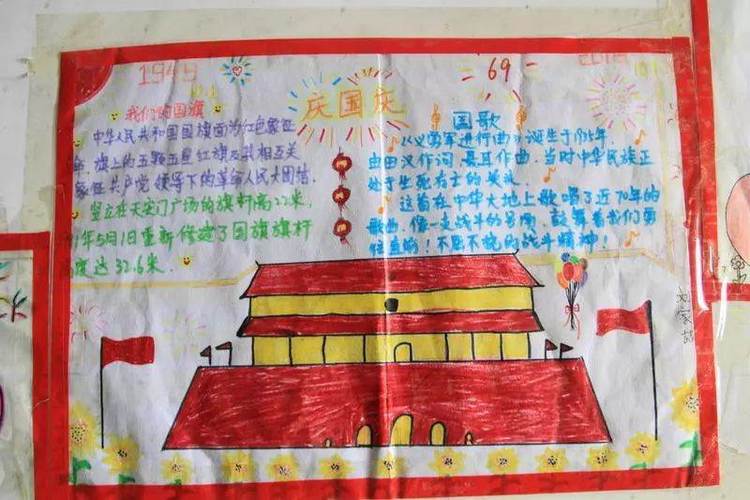 1949
69
我们的国旗
庆国庆
国歌
中华人民共和国国旗面为红色象征
旗上的五颗五星红旗及其相互关
象征共产党领导下的革命人民大团结.
竖立在天安门广场的旗杆高22米,
1年5月1日重新修建了国旗旗杆
高度达32.6米.
《义勇军进行曲》诞生于
由田汉作词,聂耳作曲.当时中华民族正
处于生死存亡的关头.
这首在中华大地上歌唱了近70年的
歌曲,像一支战斗的号角,鼓舞着我们勇
往直前!不屈不挠的战斗精神!